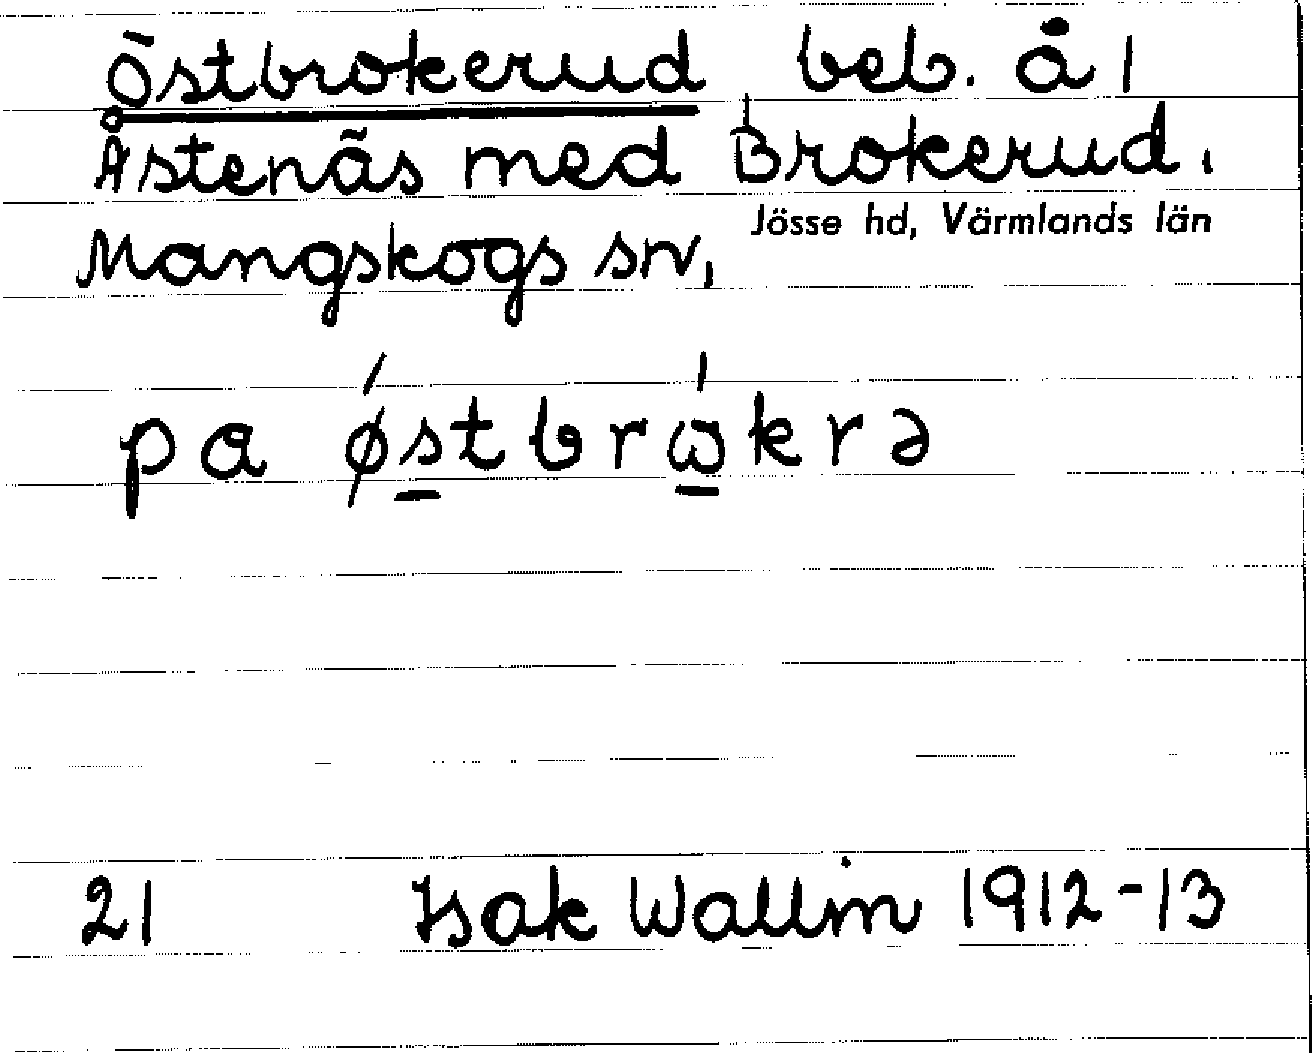 Östbrokerud beb. å 1
Åstenäs med Brokerud.
Jösse hd, Värmlands län
Mangskogs sn,
pa ǿstbrɷ́krə
21 Isak Wallin 1912-13